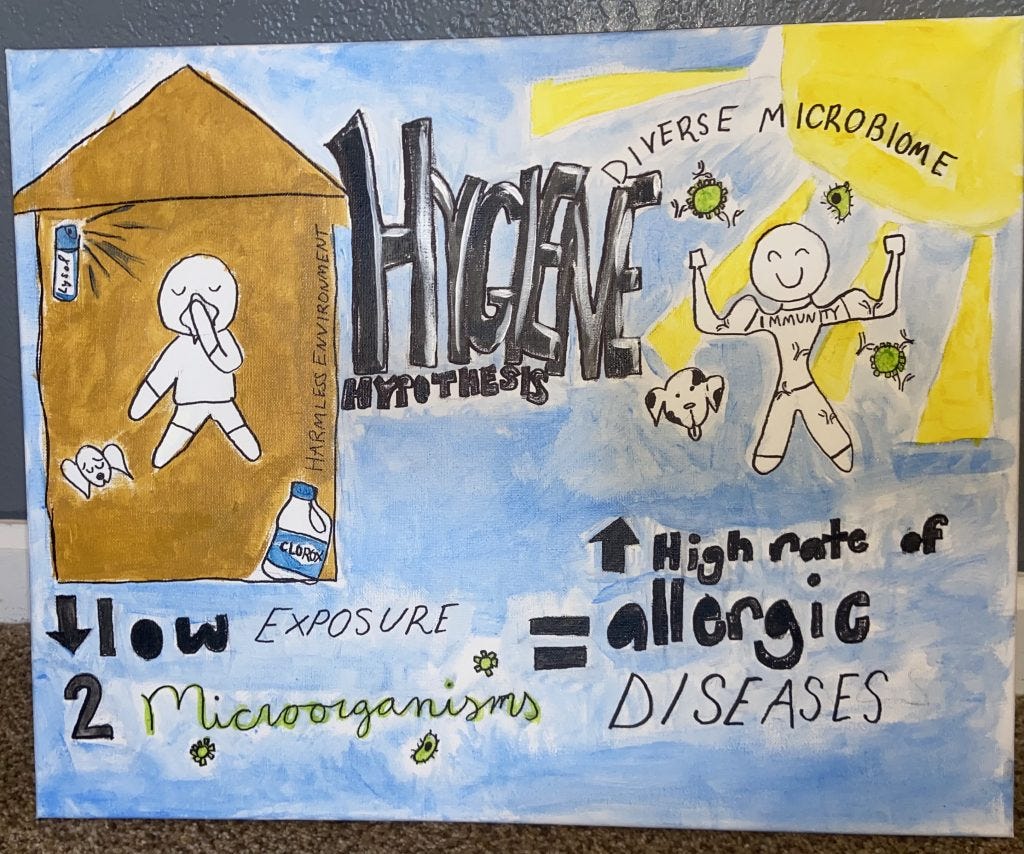 DIVERSE MICROBIOME
HYGIENE
HYPOTHESIS
Lysol
HARMLESS ENVIRONMENT
IMMUNITY
CLOROX
low EXPOSURE
2 Microorganisms
=
High rate of
allergic
DISEASES